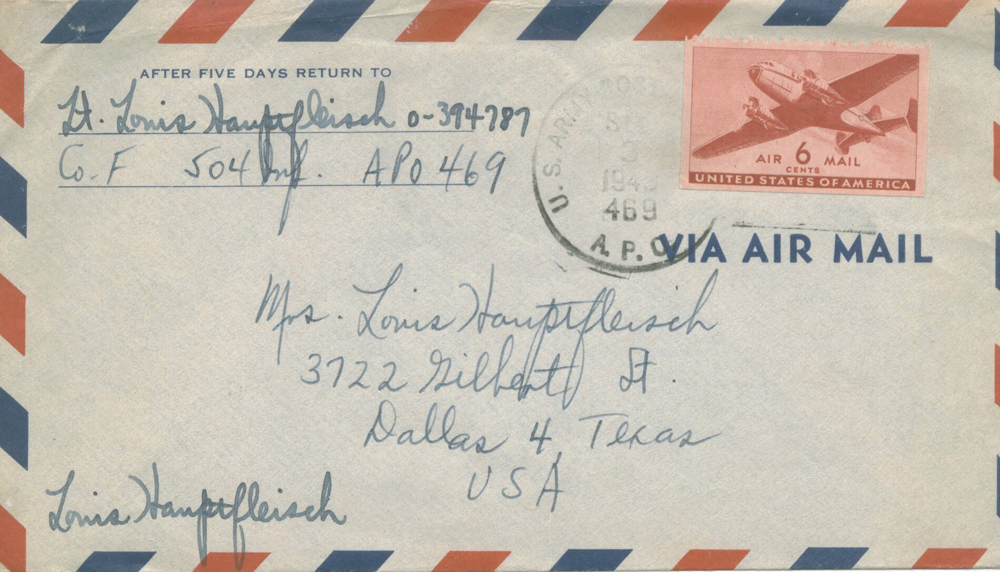 AFTER FIVE DAYS RETURN TO
Lt. Louis Hauptfleisch O-394787
Co. F 504 Inf. APO 469
U.S. ARMY
469
A.P.O.
AIR 6 MAIL
CENTS
UNITED STATES OF AMERICA
VIA AIR MAIL
Mrs. Louis Hauptfleisch
3722 Gilbert St.
Dallas 4, Texas
USA
Louis Hauptfleisch